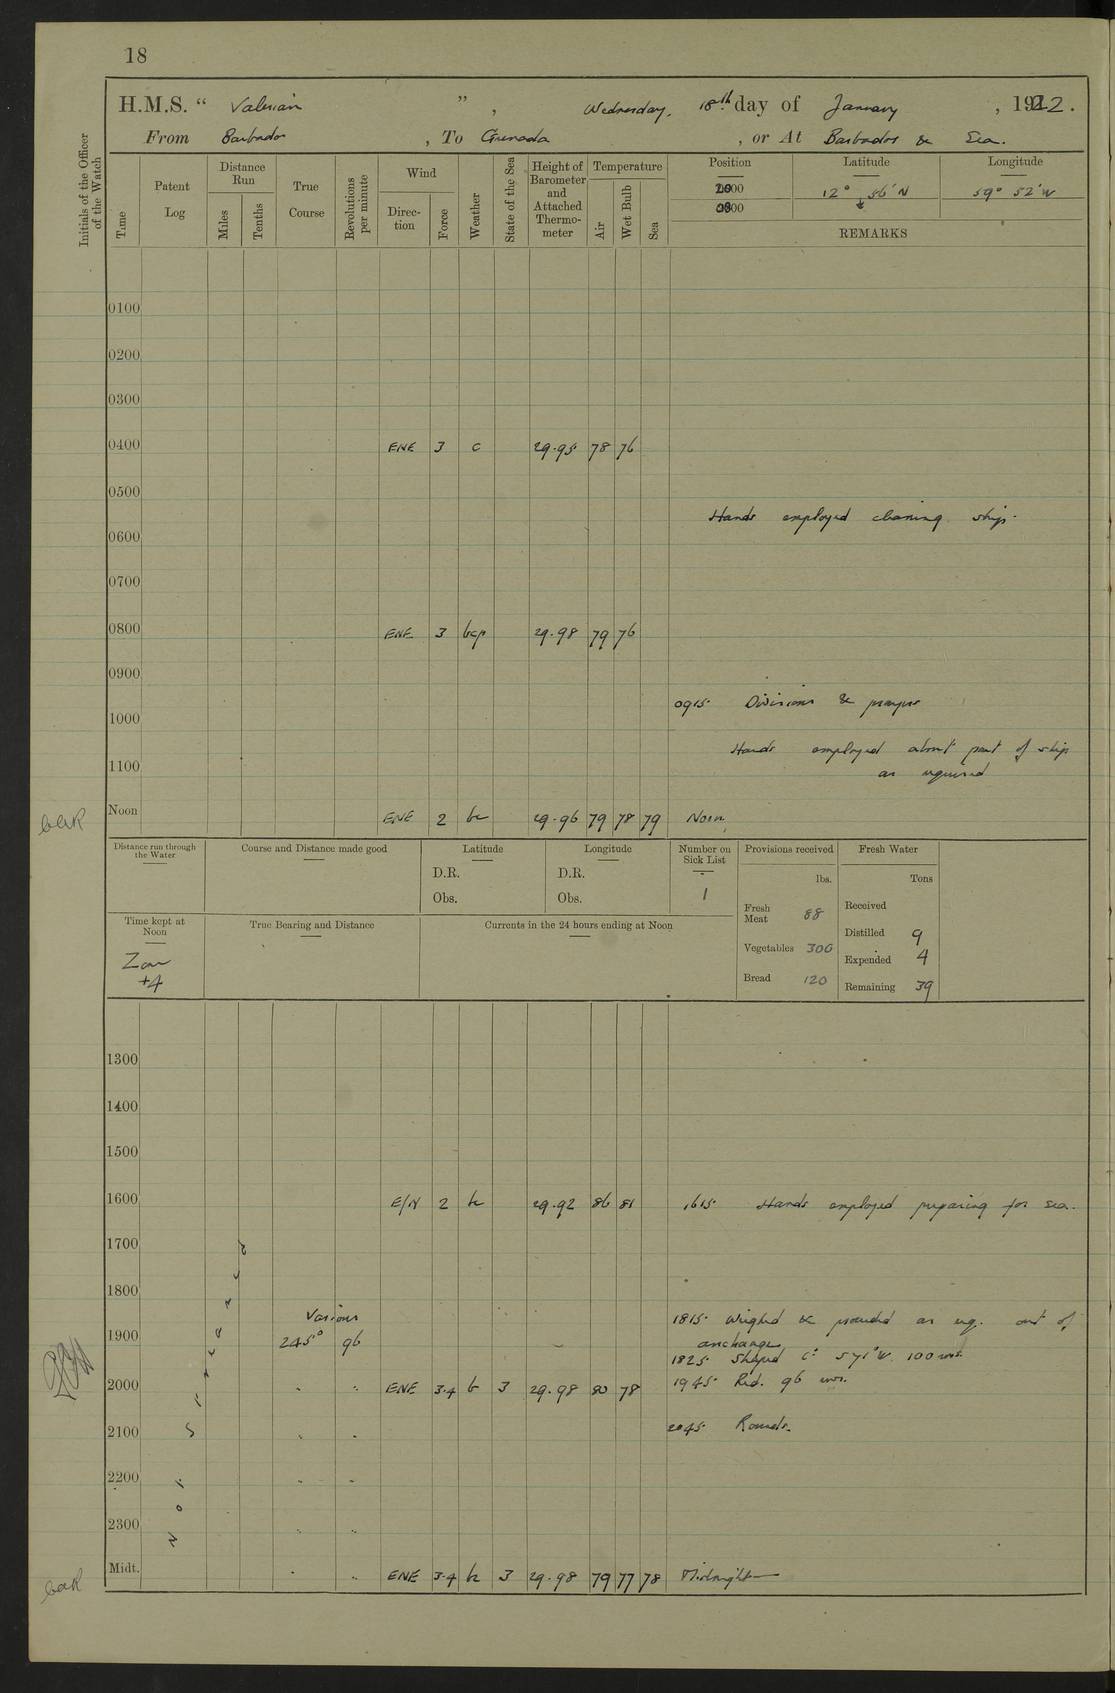 18
H.M.S. “ Valerian ” , Wednesday, 18th day of January , 1922.
From Barbados , To Grenada , or At Barbados & Sea.
Initials of the Officer of the Watch
Time
Patent Log
Distance Run
Miles
Tenths
True Course
Revolutions per minute
Wind
Direction
Force
Weather
State of the Sea
Height of Barometer and Attached Thermometer
Temperature
Air
Wet Bulb
Sea
Position Latitude Longitude
2000 12° 56' N 59° 52' W
0800
REMARKS
0100
0200
0300
0400 ENE 3 c 29.95 78 76
0500
Hands employed cleaning ship.
0600
0700
0800 ENE 3 bcp 29.98 79 76
0900
0915. Divisions & prayers
1000
Hands employed about part of ship
1100 as required
Noon ENE 2 bc 29.96 79 78 79 Noon
Distance run through the Water
Course and Distance made good
Latitude
D.R.
Obs.
Longitude
D.R.
Obs.
Number on Sick List
1
Provisions received
lbs.
Fresh Meat 88
Vegetables 300
Bread 120
Fresh Water
Tons
Received
Distilled 9
Expended 4
Remaining 39
Time kept at Noon
Zone
+4
True Bearing and Distance
Currents in the 24 hours ending at Noon
1300
1400
1500
1600 E/N 2 bc 29.92 86 81 1615. Hands employed preparing for sea.
1700
1800
Various 1815. Weighed & proceeded as req. out of
1900 245° 96 anchorage
1825. Shaped Co S 71° W. 100
2000 " " ENE 3.4 b 3 29.98 80 78 1945. Red. 96
2100 " " 2045. Rounds.
2200 " "
2300 " "
Midt. " " ENE 3.4 bc 3 29.98 79 77 78 Midnight
Not Streamed